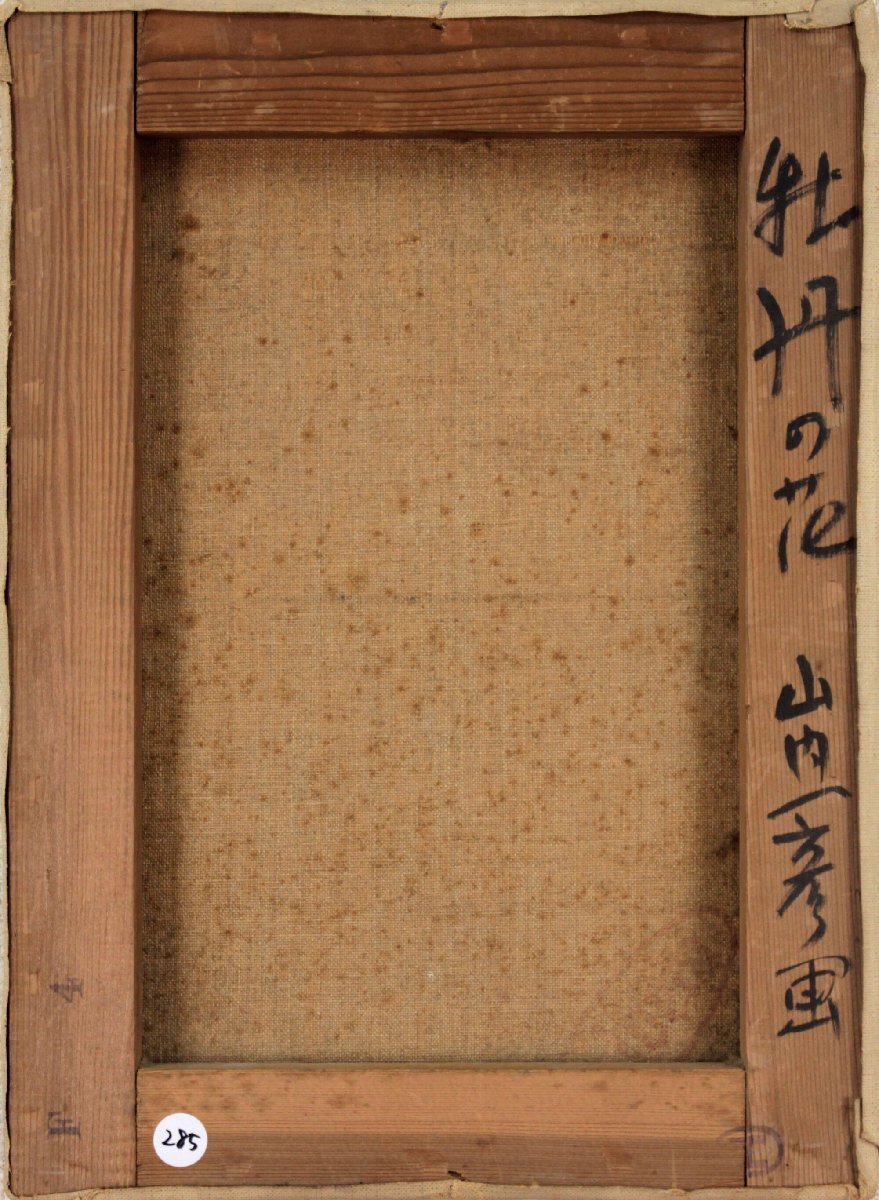 牡丹の花 山内一彦画
F 4
285